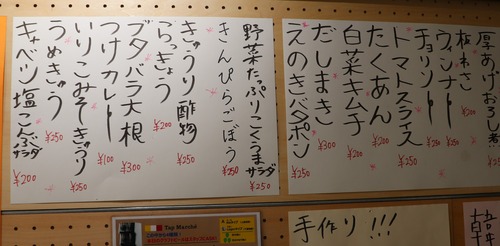 厚あげおろし煮
板わさ ¥200
ウィンナー ¥250
チョリソー ¥250
トマトスライス ¥250
たくあん ¥200
白菜キムチ ¥200
だしまき ¥300
えのきバタポン ¥250
野菜たっぷりこくうまサラダ ¥250
きんぴらごぼう ¥250
きゅうり酢物 ¥250
らっきょう ¥200
ブタバラ大根 ¥300
つけカレー ¥100
いりこみそきゅうり ¥250
うめきゅう ¥250
キャベツ塩こんぶサラダ ¥200
手作り!!!
Top Marché
韓